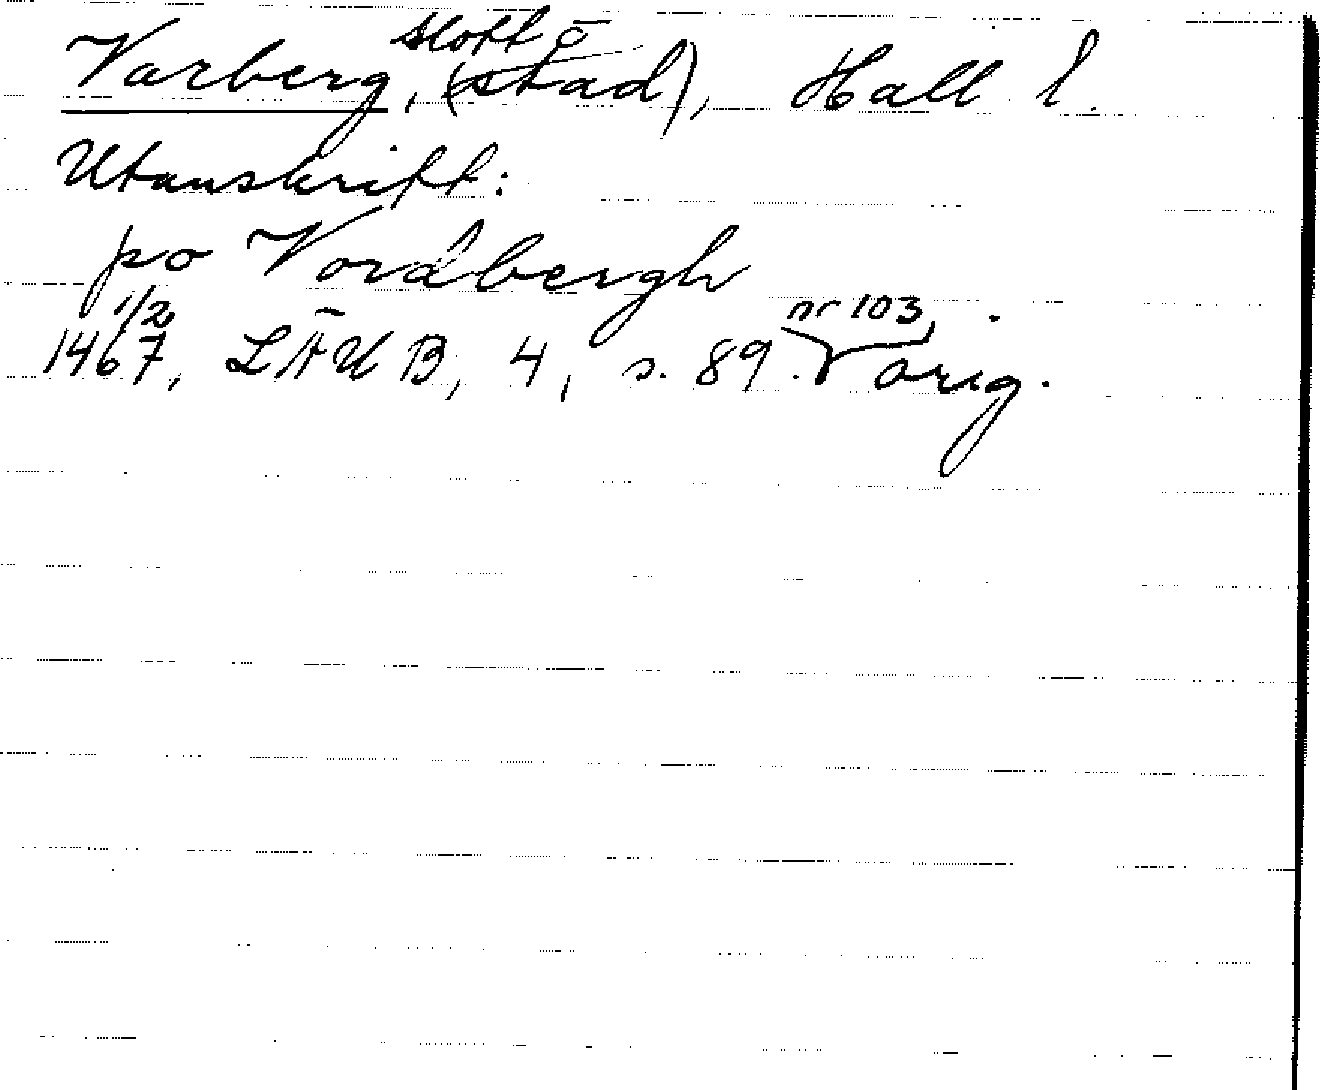 Varberg, (slott o stad), Hall l.
Utanskrift:
po Vordbergh
1/2
1467, LÄUB, 4, s. 89. nr 103, orig.